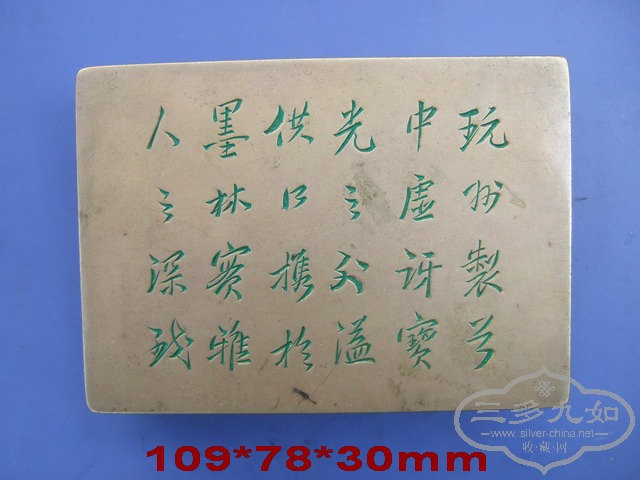 玩妙製兮
中虛訝寶
光之外溢
供携於
墨林實雅
人之深致
109*78*30mm
三多九如
www.silver-china.net
收藏网